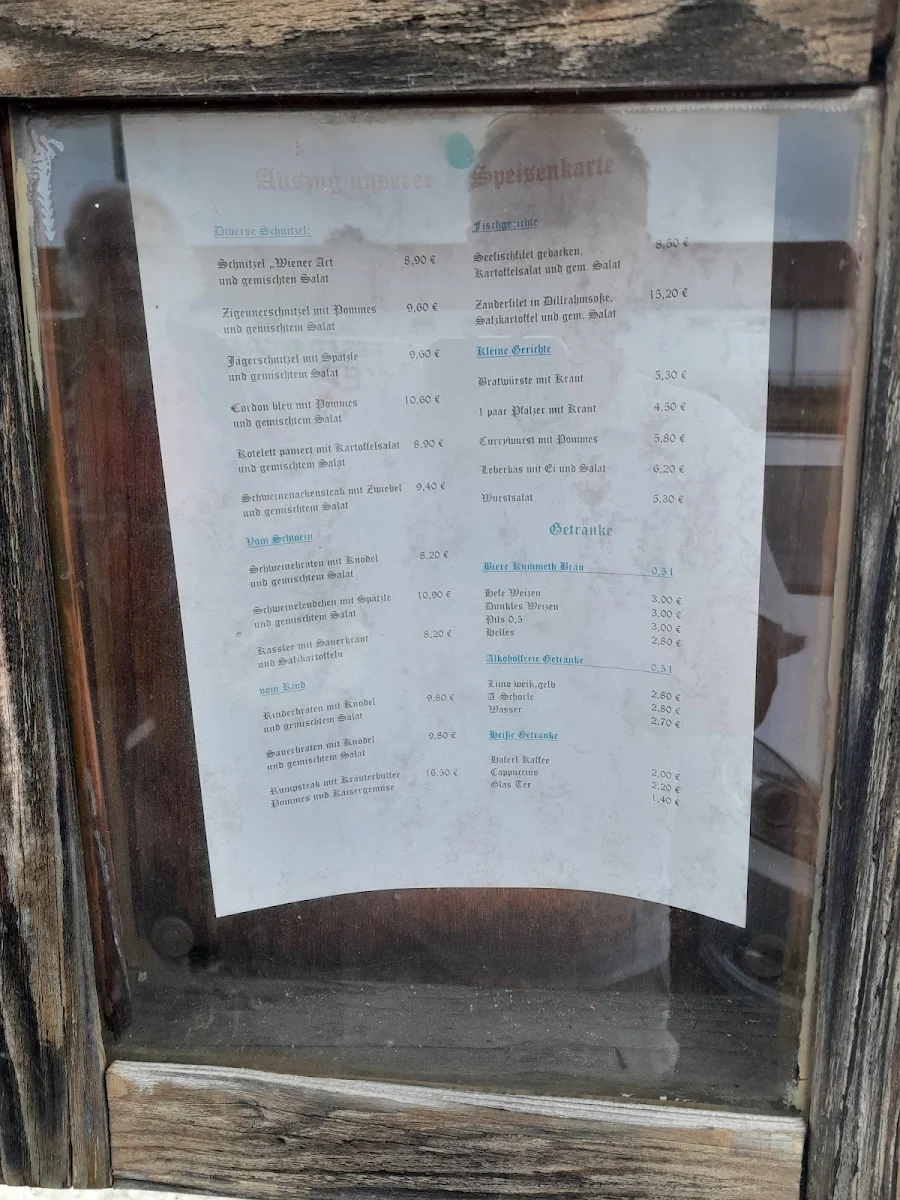 Auszug unserer Speisenkarte
Diverse Schnitzel:
Schnitzel „Wiener Art 8,90 €
und gemischten Salat
Zigeunerschnitzel mit Pommes 9,60 €
und gemischtem Salat
Jägerschnitzel mit Spätzle 9,60 €
und gemischtem Salat
Cordon bleu mit Pommes 10,60 €
und gemischtem Salat
Kotelett paniert mit Kartoffelsalat 8,90 €
und gemischtem Salat
Schweinenackensteak mit Zwiebel 9,40 €
und gemischtem Salat
Vom Schwein
Schweinebraten mit Knödel 8,20 €
und gemischtem Salat
Schweinelendchen mit Spätzle 10,90 €
und gemischtem Salat
Kassler mit Sauerkraut 8,20 €
und Salzkartoffeln
vom Rind
Rinderbraten mit Knödel 9,80 €
und gemischtem Salat
Sauerbraten mit Knödel 9,80 €
und gemischtem Salat
Rumpsteak mit Kräuterbutter 16,50 €
Pommes und Kaisergemüse
Fischgerichte
Seefischfilet gebacken, 8,50 €
Kartoffelsalat und gem. Salat
Zanderfilet in Dillrahmsoße, 15,20 €
Salzkartoffel und gem. Salat
Kleine Gerichte
Bratwürste mit Kraut 5,30 €
1 paar Pfälzer mit Kraut 4,50 €
Currywurst mit Pommes 5,80 €
Leberkäs mit Ei und Salat 6,20 €
Wurstsalat 5,30 €
Getränke
Biere Kummeth Bräu 0,5 l
Hefe Weizen 3,00 €
Dunkles Weizen 3,00 €
Pils 0,5 3,00 €
Helles 2,80 €
Alkoholfreie Getränke 0,5 l
Limo weiß,gelb 2,80 €
A-Schorle 2,80 €
Wasser 2,70 €
Heiße Getränke
Haferl Kaffee 2,00 €
Cappucino 2,20 €
Glas Tee 1,40 €